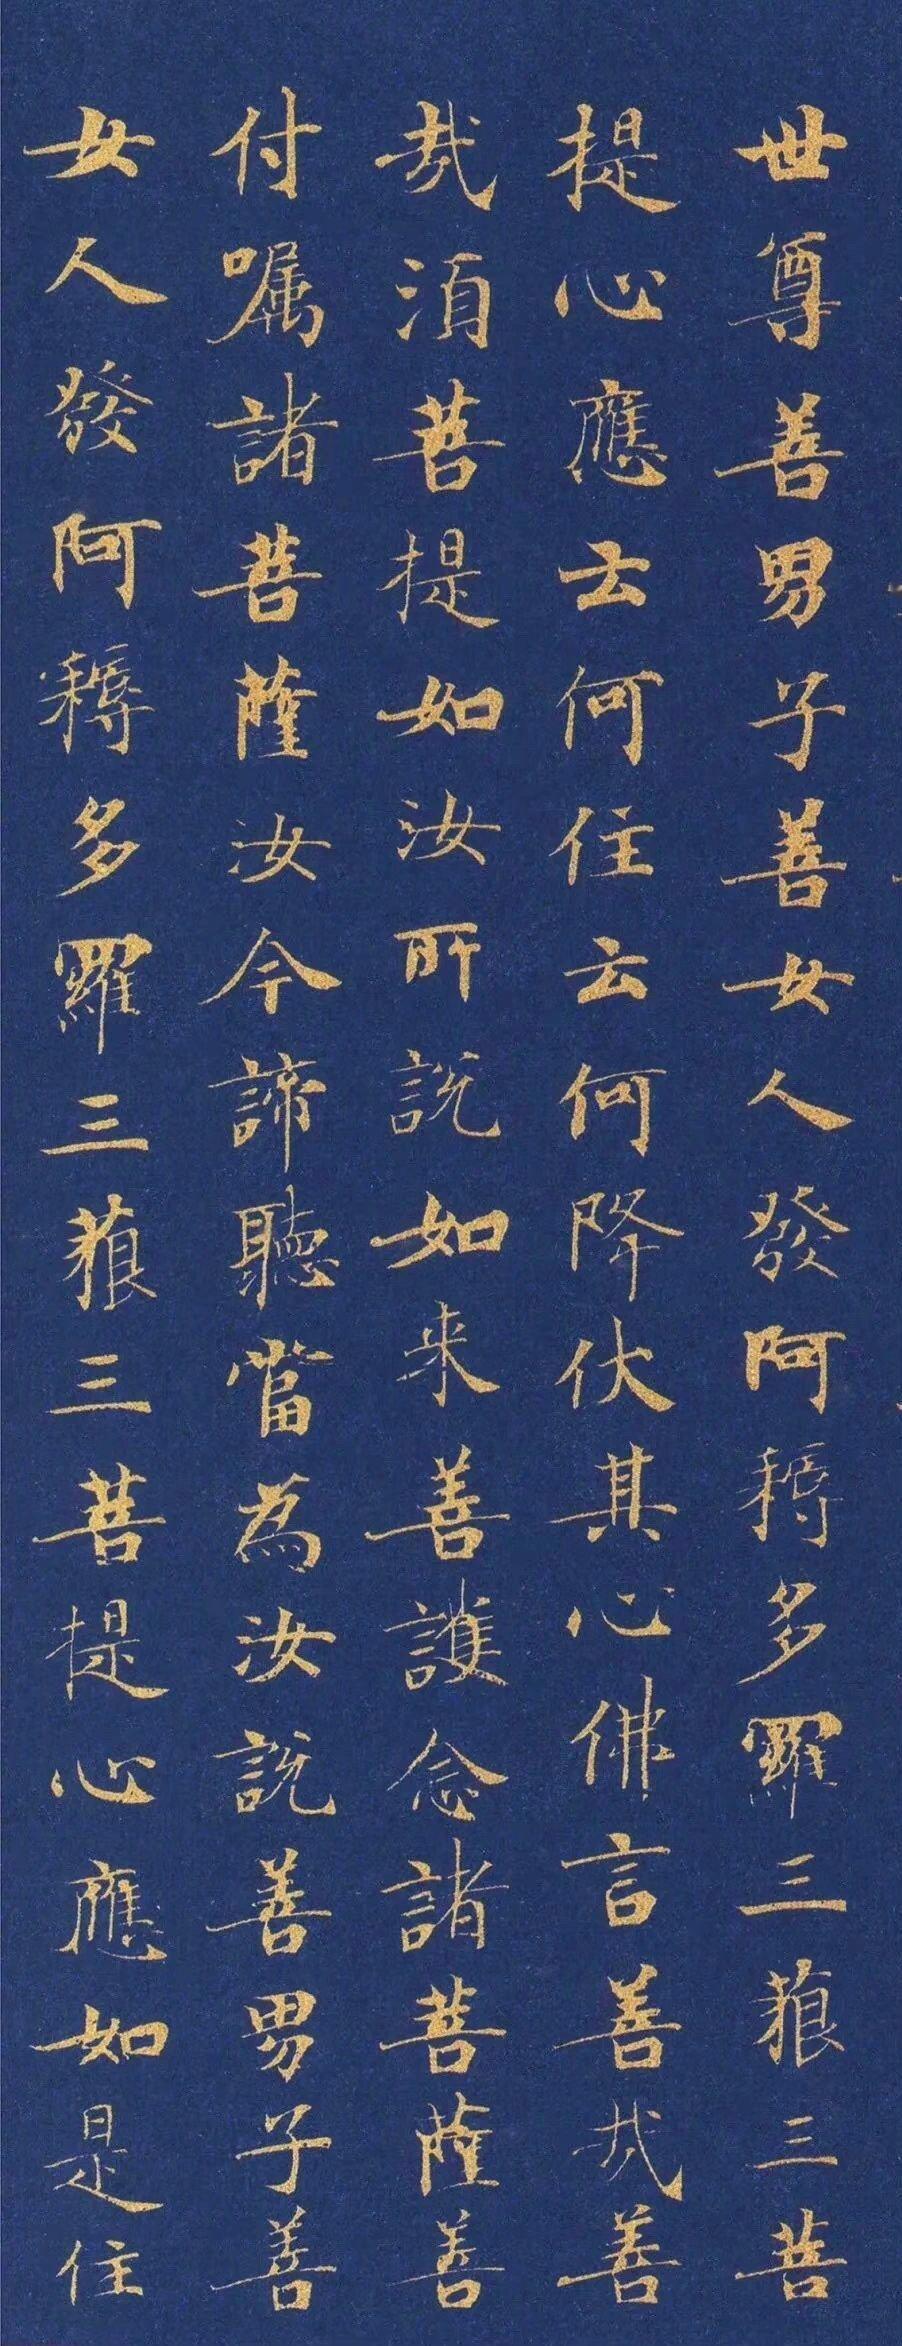 世尊善男子善女人發阿耨多羅三藐三菩
提心應云何住云何降伏其心佛言善哉善
哉須菩提如汝所說如来善護念諸菩薩善
付嘱諸菩薩汝今諦聽當為汝說善男子善
女人發阿耨多羅三藐三菩提心應如是住